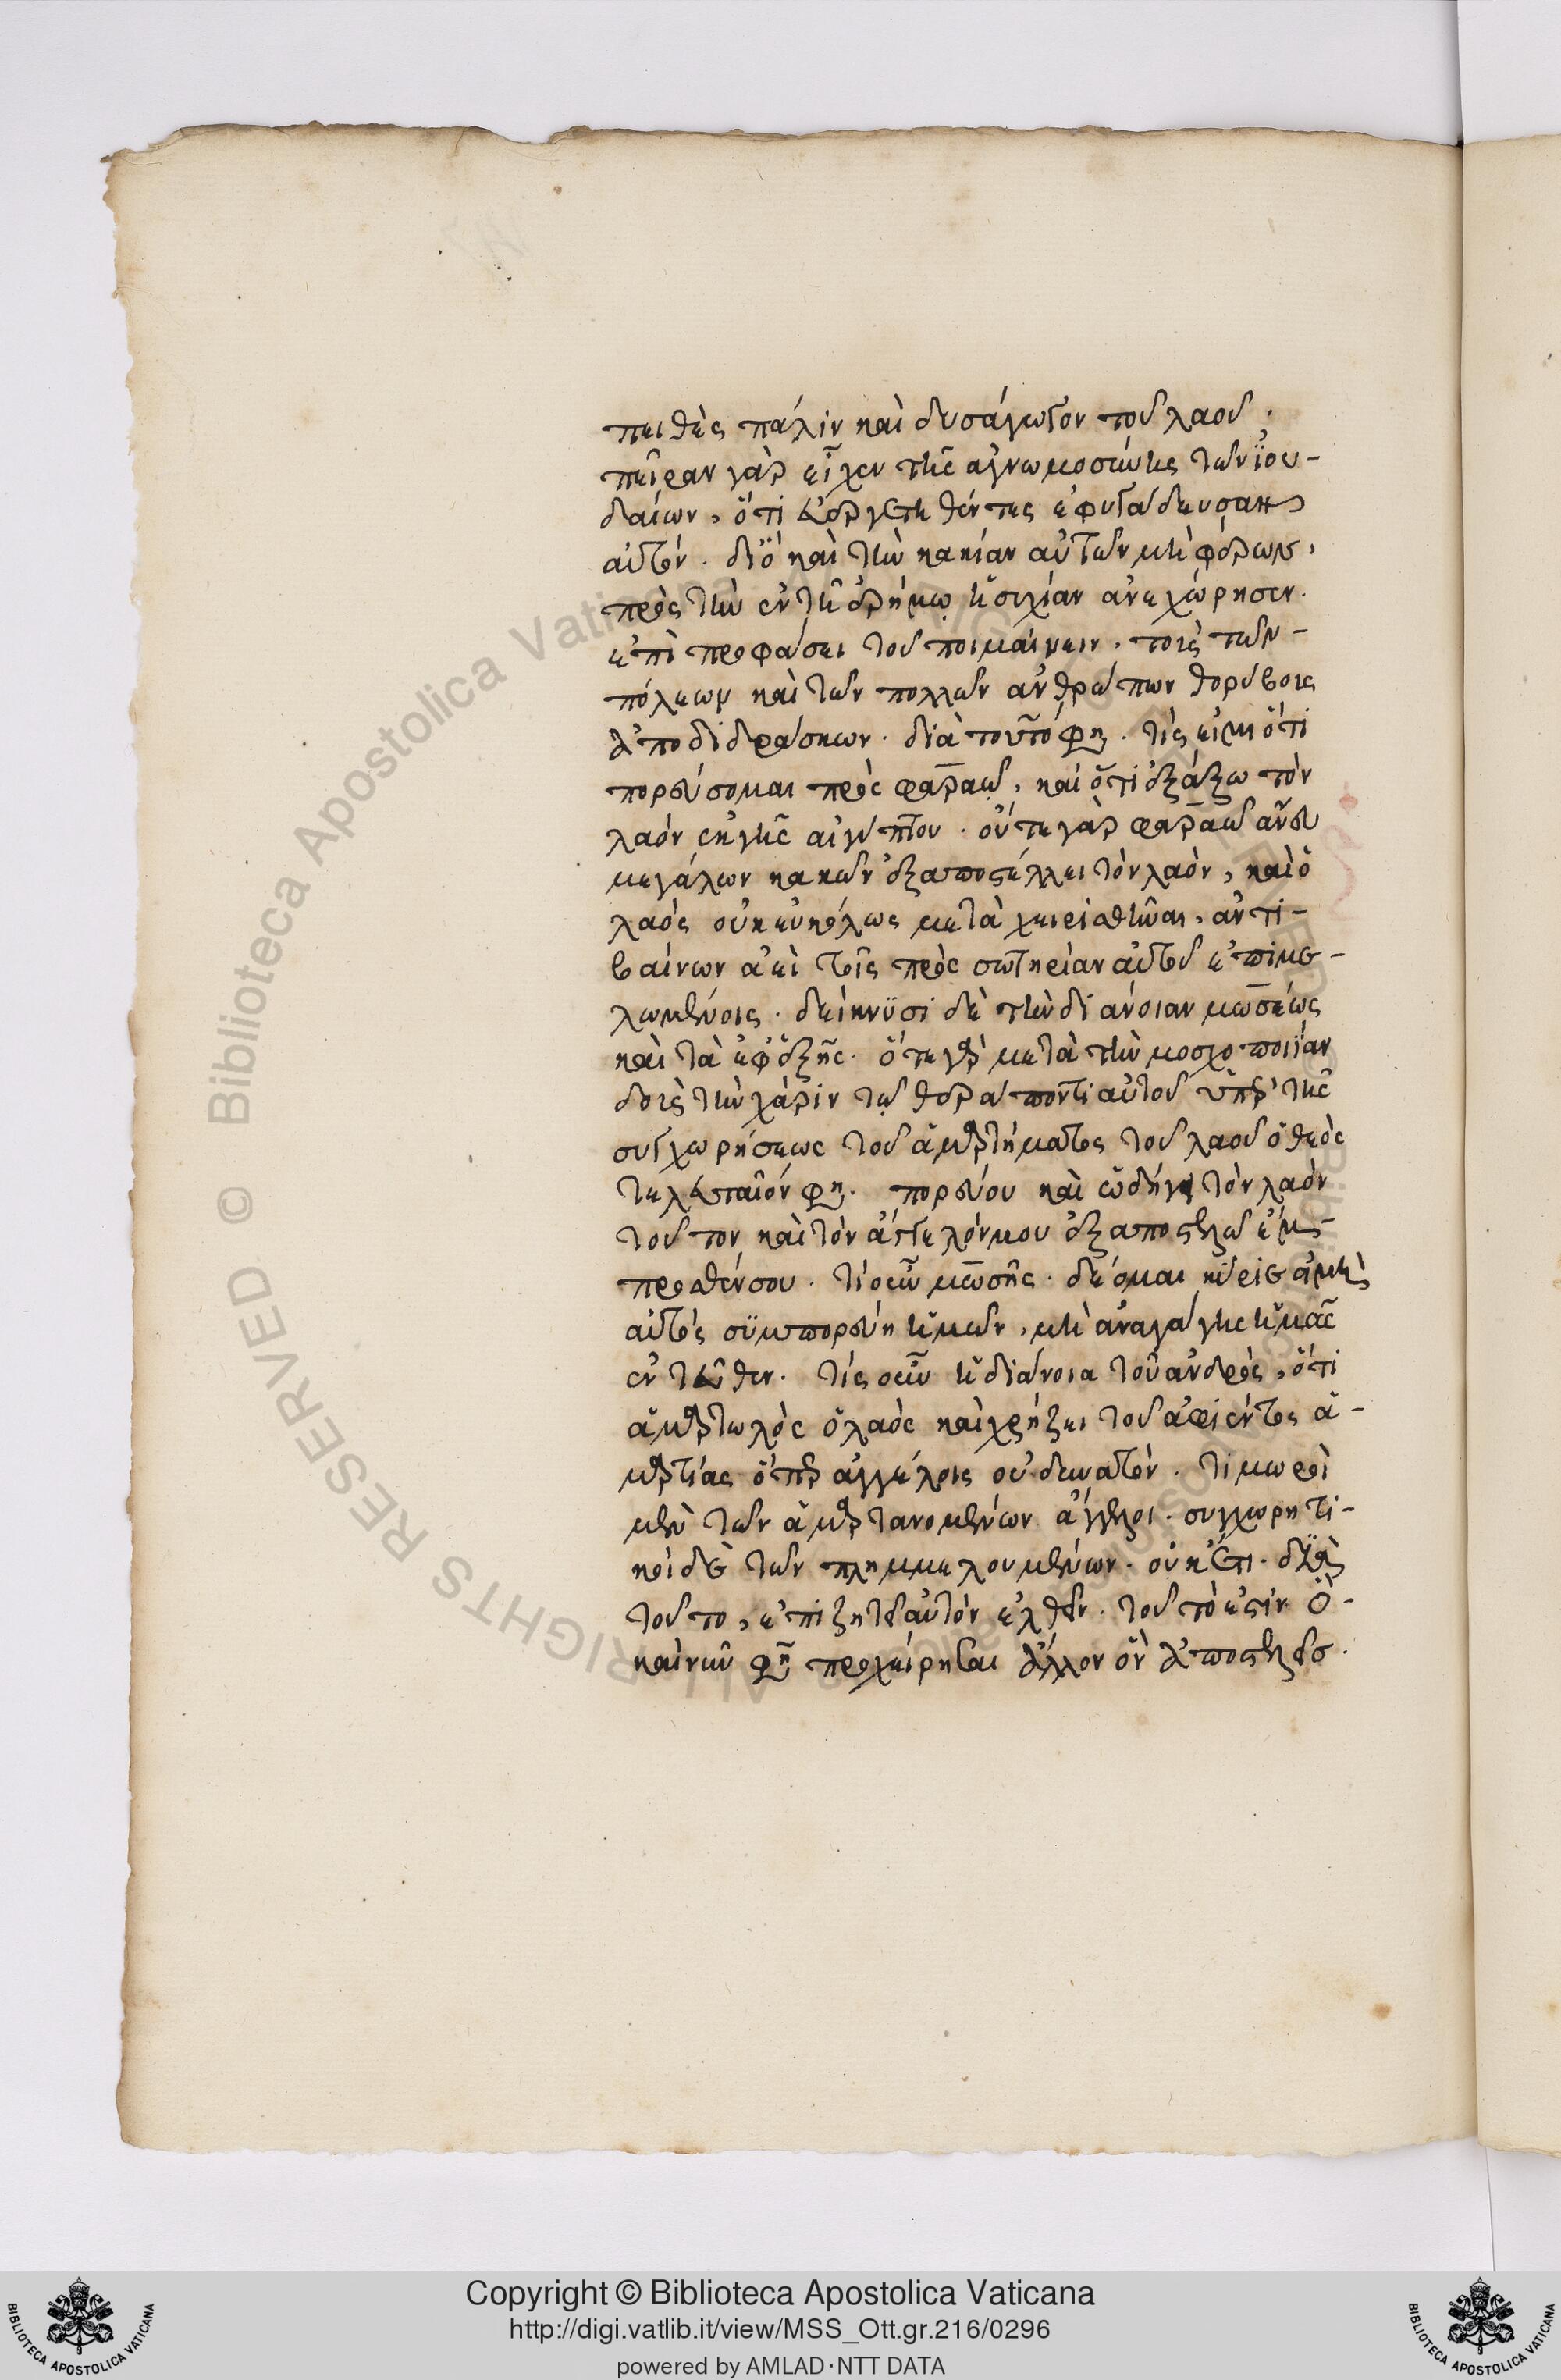 πειθὲς πάλιν καὶ δυσάγωγον τοῦ λαοῦ.
πεῖραν γὰρ εἶχεν τῆς ἀγνωμοσύνης τῶν ἰου-
δαίων, ὅτι εὐεργετηθέντες ἐφυγάδευσαν
αὐτόν. διὸ καὶ τὴν κακίαν αὐτῶν μὴ φέρων,
πρὸς τὴν ἐν τῇ ἐρήμῳ ἡσυχίαν ἀνεχώρησεν.
ἐπὶ προφάσει τοῦ ποιμαίνειν. τοὺς τῶν-
πόλεων καὶ τῶν πολλῶν ἀνθρώπων θορύβους
ἀποδιδράσκων. διὰ τοῦτό φη. τίς εἰμι ὅτι
πορεύσομαι πρὸς φαραὼ, καὶ ὅτι ἐξάξω τὸν
λαὸν ἐκ γῆς αἰγύπτου. οὔτε γὰρ φαραὼ ἄνευ
μεγάλων κακῶν ἐξαποστέλλει τὸν λαὸν, καὶ ὁ
λαὸς οὐκ εὐκόλως μεταχειρισθῆναι, ἀντι-
βαίνων ἀεὶ τοῖς πρὸς σωτηρίαν αὐτοῦ ἐπιμε-
λωμένοις. δείκνυσι δὲ τὴν διάνοιαν μωσέως
καὶ τὰ ἐφεξῆς. ὅτε γὰρ μετὰ τὴν μοσχοποιίαν
δοὺς τὴν χάριν τῷ θεράποντι αὐτοῦ ὑπὲρ τῆς
συγχωρήσεως τοῦ ἁμαρτήματος τοῦ λαοῦ ὁ θεὸς
τελευταῖόν φη. πορεύου καὶ ὡδήγει τὸν λαὸν
τοῦτον καὶ τὸν ἄγγελόν μου ἐξαποστελῶ ἔμ-
προσθέν σου. τί οὖν μωσῆς. δέομαι κύριε ἂν μὴ
αὐτὸς συμπορεύῃ ἡμῶν, μὴ ἀναγάγῃς ἡμᾶς
ἐντεῦθεν. τίς οὖν ἡ διάνοια τοῦ ἀνδρὸς, ὅτι
ἁμαρτωλὸς ὁ λαὸς καὶ χρήζει τοῦ ἀφιέντος ἁ-
μαρτίας ὅπερ ἀγγέλοις οὐ δυνατόν. τιμωροὶ
μὲν τῶν ἁμαρτανομένων ἄγγελοι. συγχωρητι-
κοὶ δὲ τῶν πλημμελουμένων. οὐκέτι. διὰ
τοῦτο, ἐπιζητεῖ αὐτὸν ἐλθεῖν. τοῦτό ἐστιν ὃ-
καὶ νῦν φη προχείρησαι ἄλλον ὃν ἀποστελεῖς.
Copyright © Biblioteca Apostolica Vaticana
http://digi.vatlib.it/view/MSS_Ott.gr.216/0296
powered by AMLAD·NTT DATA